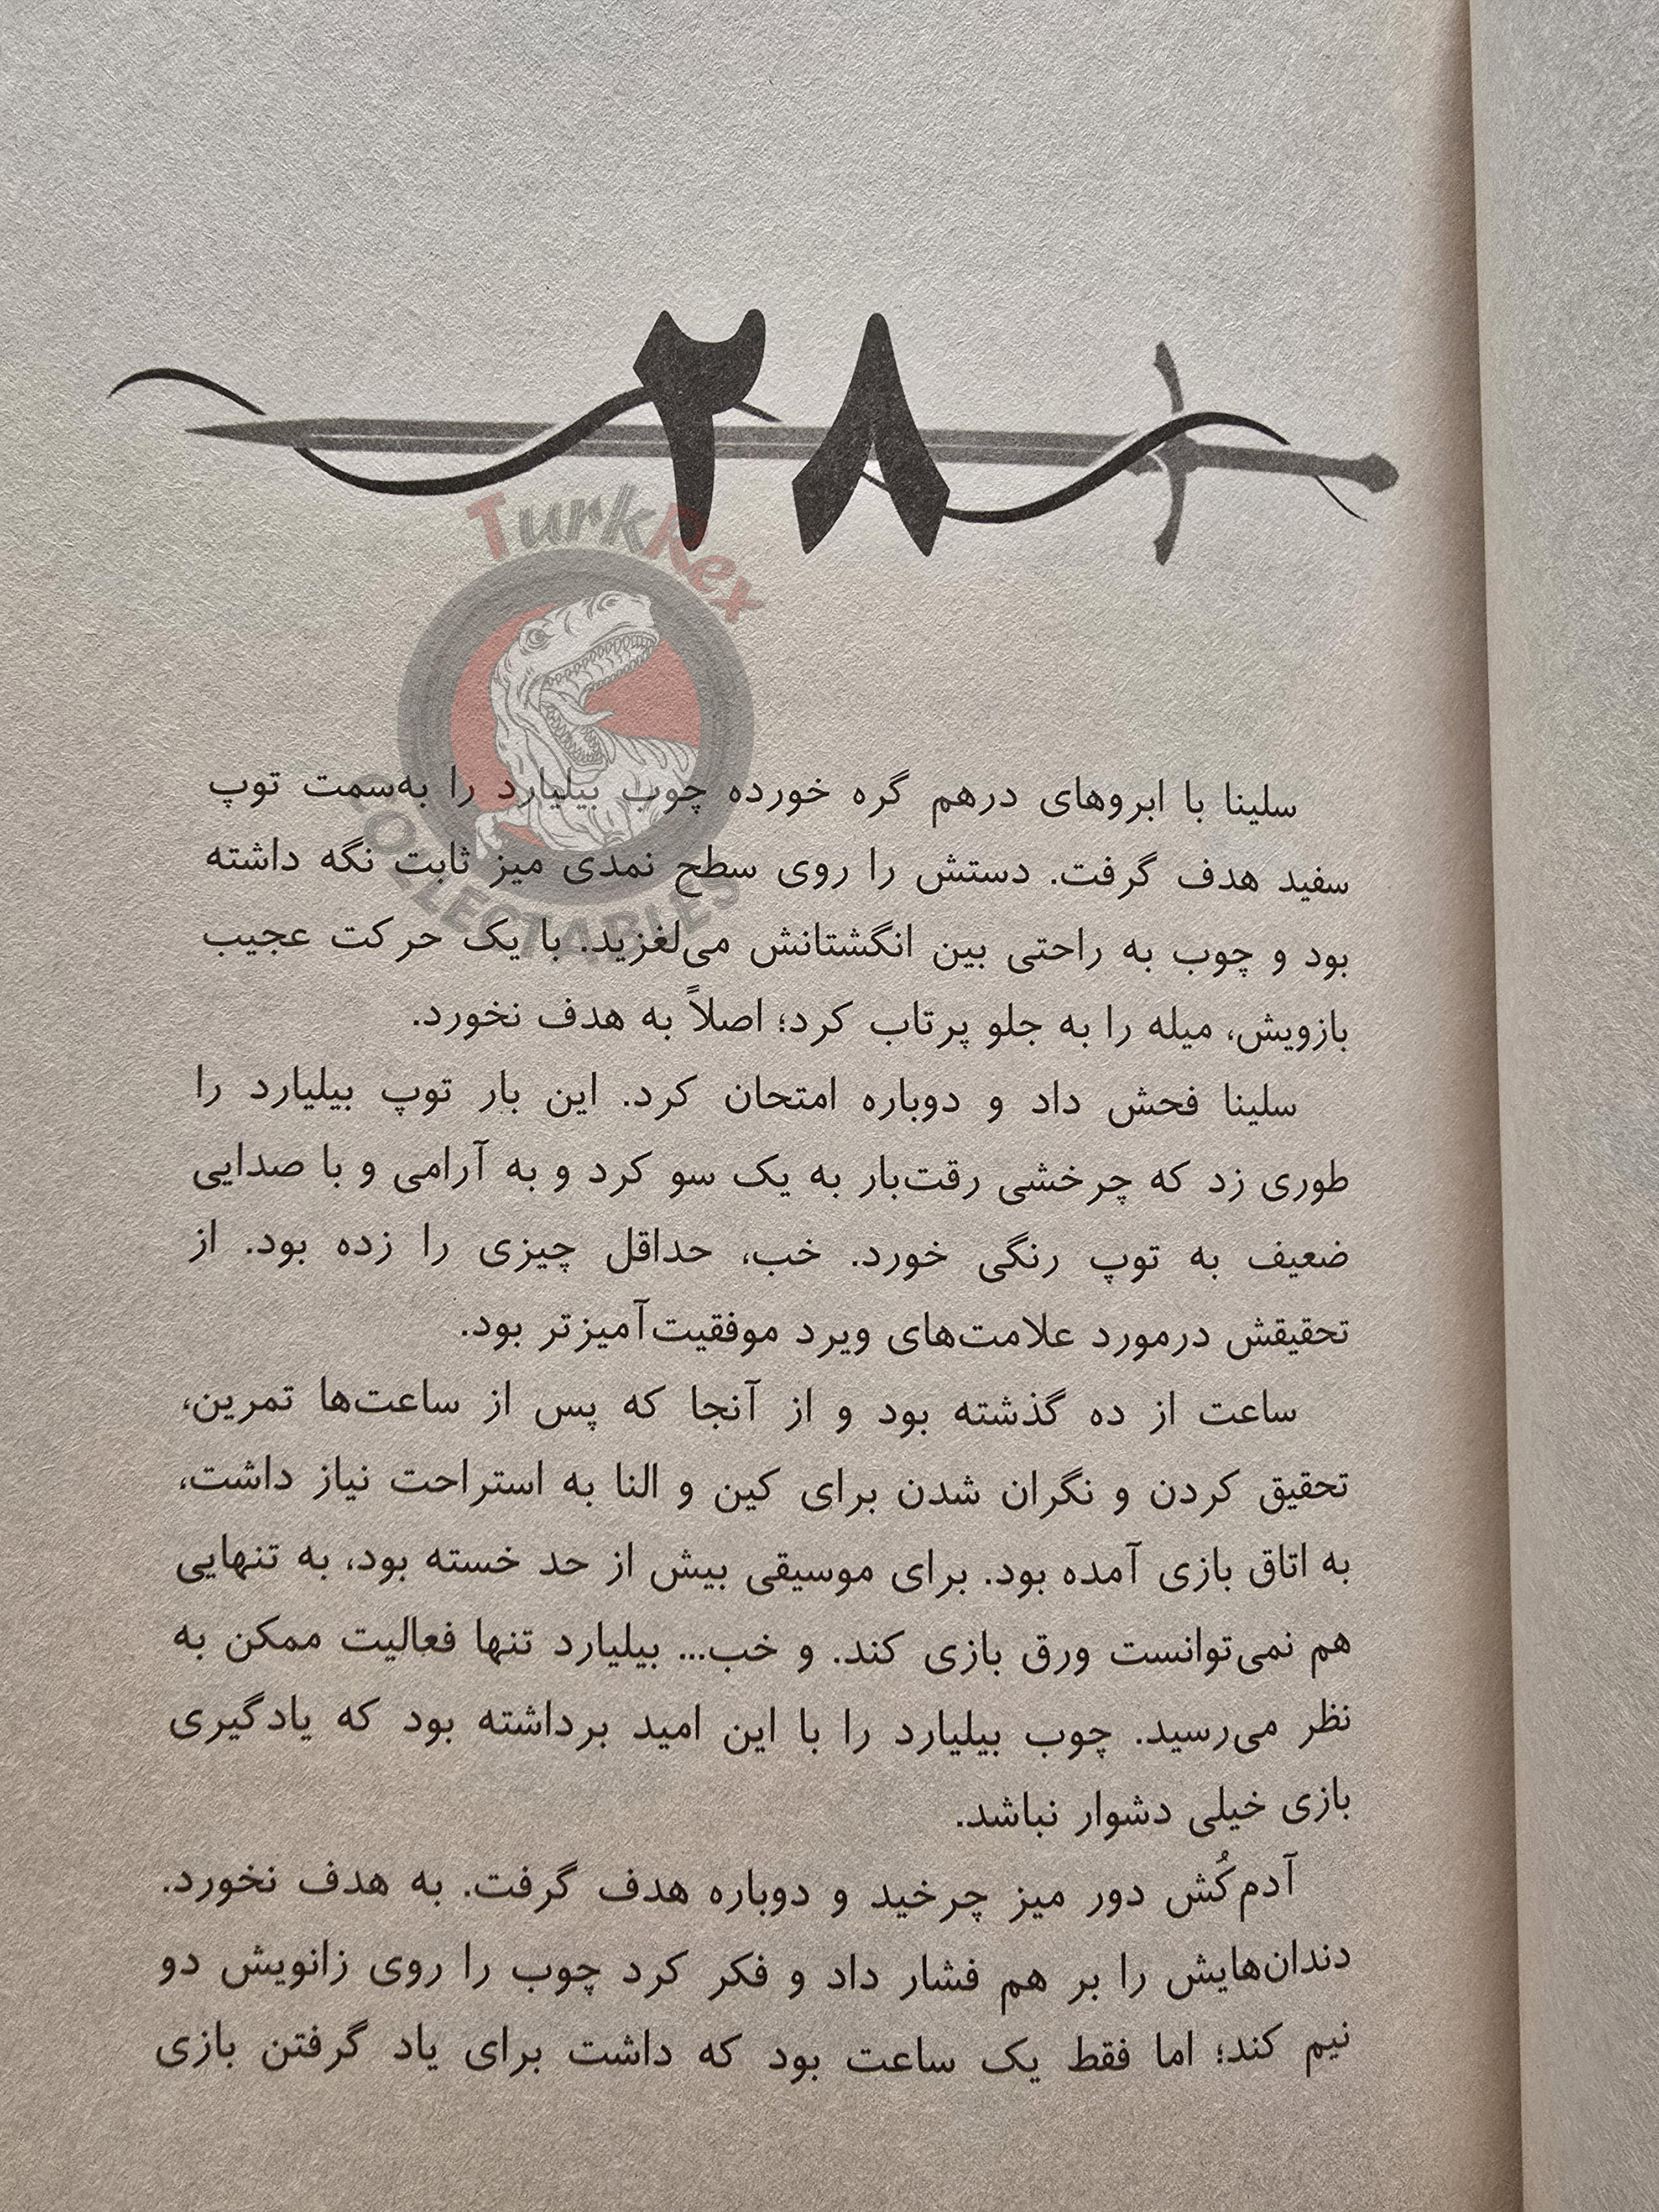 ۲۸
TurkRex
COLLECTABLES
سلینا با ابروهای درهم گره خورده چوب بیلیارد را به‌سمت توپ
سفید هدف گرفت. دستش را روی سطح نمدی میز ثابت نگه داشته
بود و چوب به راحتی بین انگشتانش می‌لغزید. با یک حرکت عجیب
بازویش، میله را به جلو پرتاب کرد؛ اصلاً به هدف نخورد.
سلینا فحش داد و دوباره امتحان کرد. این بار توپ بیلیارد را
طوری زد که چرخشی رقت‌بار به یک سو کرد و به آرامی و با صدایی
ضعیف به توپ رنگی خورد. خب، حداقل چیزی را زده بود. از
تحقیقش درمورد علامت‌های ویرد موفقیت‌آمیزتر بود.
ساعت از ده گذشته بود و از آنجا که پس از ساعت‌ها تمرین،
تحقیق کردن و نگران شدن برای کین و النا به استراحت نیاز داشت،
به اتاق بازی آمده بود. برای موسیقی بیش از حد خسته بود، به تنهایی
هم نمی‌توانست ورق بازی کند. و خب... بیلیارد تنها فعالیت ممکن به
نظر می‌رسید. چوب بیلیارد را با این امید برداشته بود که یادگیری
بازی خیلی دشوار نباشد.
آدم‌کُش دور میز چرخید و دوباره هدف گرفت. به هدف نخورد.
دندان‌هایش را بر هم فشار داد و فکر کرد چوب را روی زانویش دو
نیم کند؛ اما فقط یک ساعت بود که داشت برای یاد گرفتن بازی